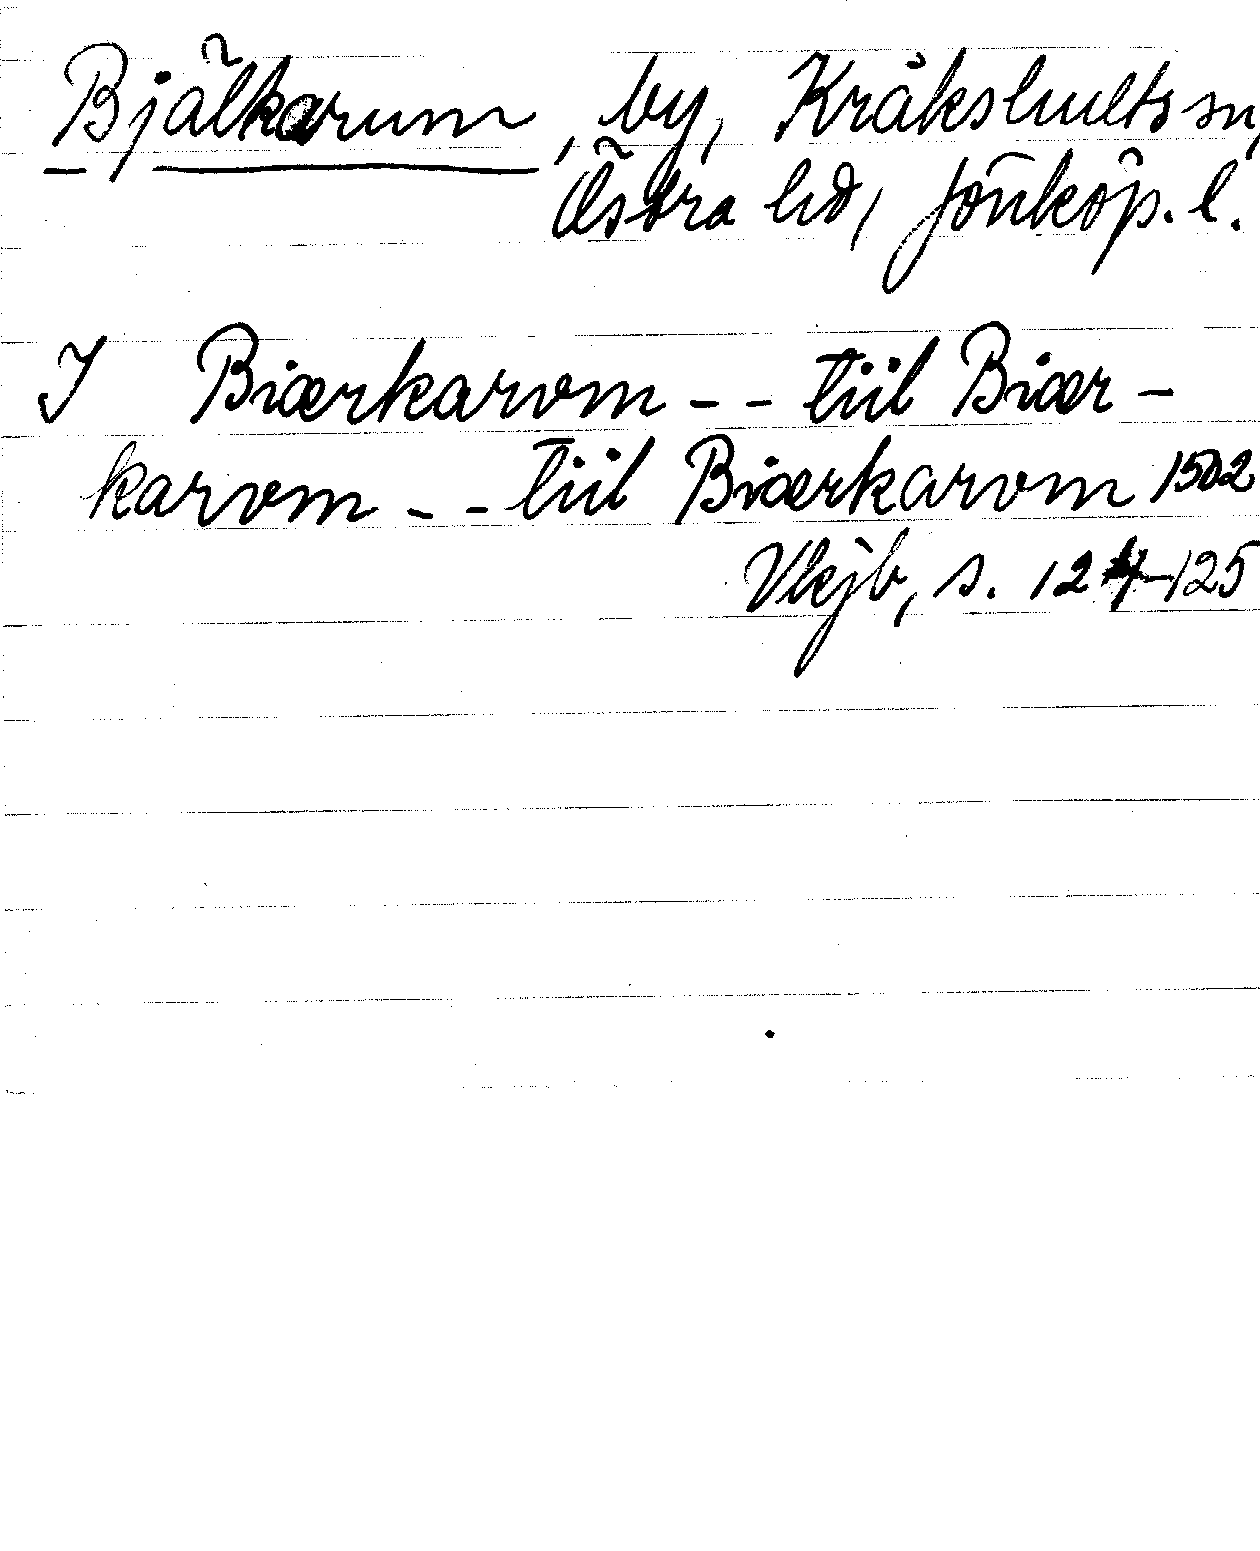 Bjälkarum, by, Kråkshults sn,
Östra hd, Jönköp. l.
I Biærkarom - - tiil Biær-
karom - - tiil Biærkarom 1502
Vkjb, s. 124-125